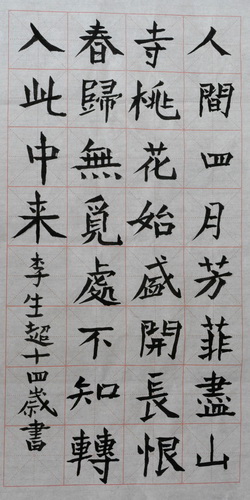 人間四月芳菲盡山
寺桃花始盛開長恨
春歸無覓處不知轉
入此中来
李生超十四歲書